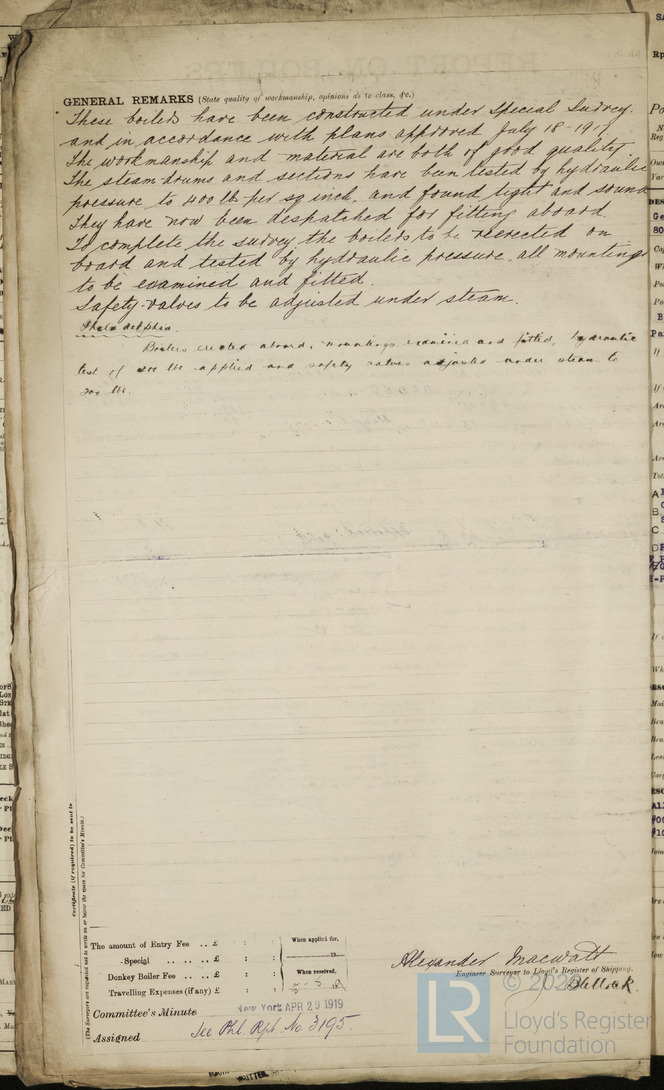 GENERAL REMARKS (State quality of workmanship, opinions as to class, &c.)
These boilers have been constructed under Special Survey.
and in accordance with plans approved July 18-191
The workmanship and material are both of good quality
The steam drums and sections have been tested by hydraulic
pressure to 400 lb per sq inch, and found tight and sound
They have now been despatched for fitting aboard.
To complete the survey the boilers to be reerected on
board and tested by hydraulic pressure, all mountings
to be examined and fitted.
Safety-valves to be adjusted under steam.
Philadelphia
Boilers erected aboard, mountings examined and fitted, hydraulic
test of lb applied and safety valves adjusted under steam to
200 lb.
Certificate (if required) to be sent to
(The Surveyors are requested not to write on or below the space for Committee's Minute.)
The amount of Entry Fee .. £ : :
Special .. .. .. £ : :
Donkey Boiler Fee .. .. £ : :
Travelling Expenses (if any) £ : :
When applied for,
19
When received,
Alexander Macwatt
Engineer Surveyor to Lloyd's Register of Shipping.
Committee's Minute
New York APR 29 1919
Assigned
See Phl. Rpt. No 3195.
LR
© 20
Lloyd's Register
Foundation